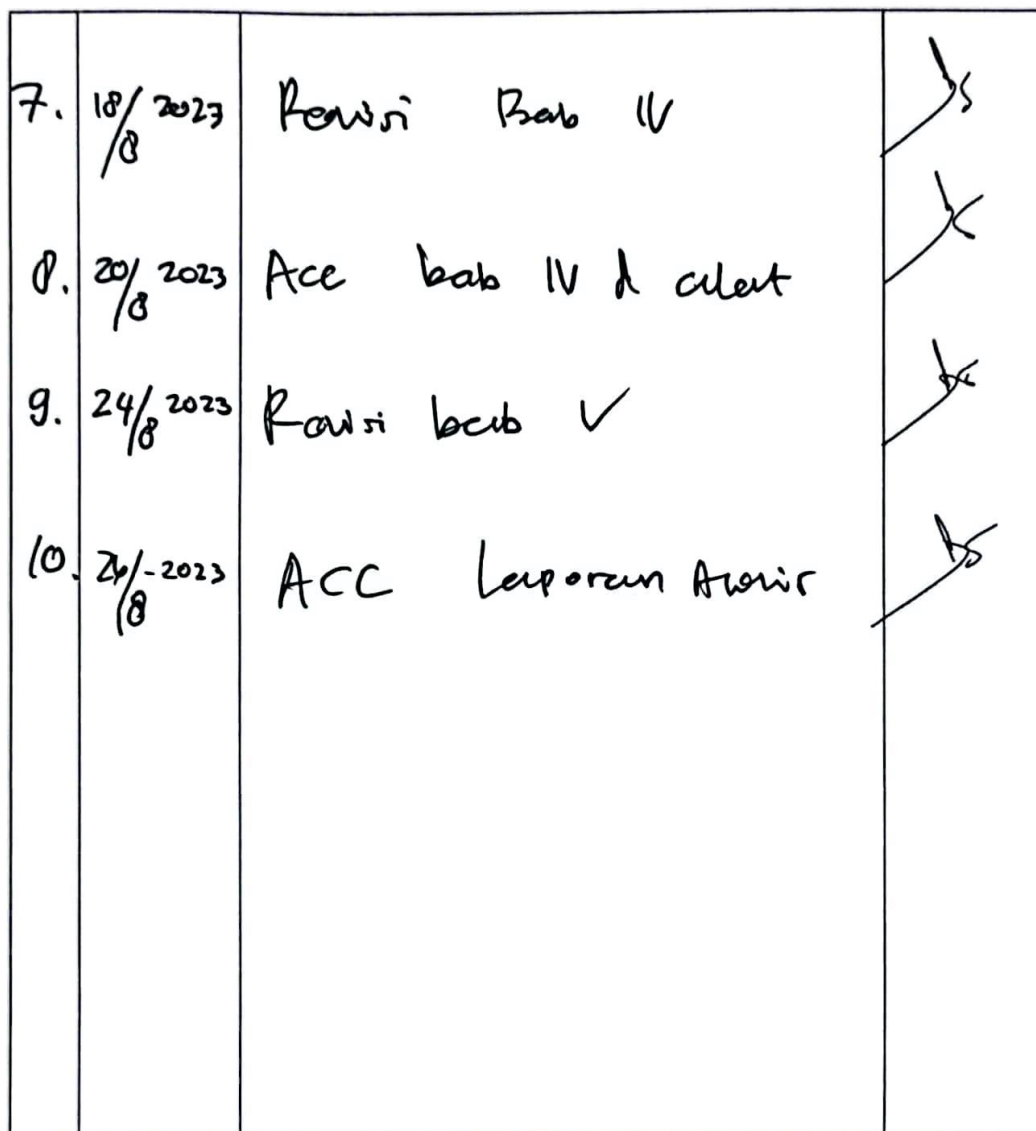 7. 18/8 2023 Revisi Bab IV
8. 20/8 2023 Acc bab IV & alat
9. 24/8 2023 Revisi bab V
10. 26/8-2023 ACC Laporan Akhir